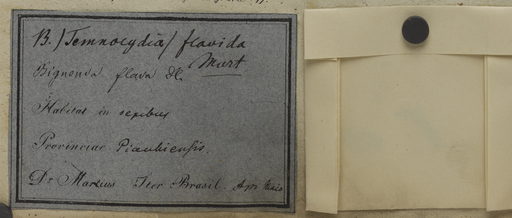 B. (Temnocydia) flavida
Mart
Bignonia flava
Habitat in sepibus
Provinciae Piauhiensis.
Dr Martius Iter Brasil. Apr Maio